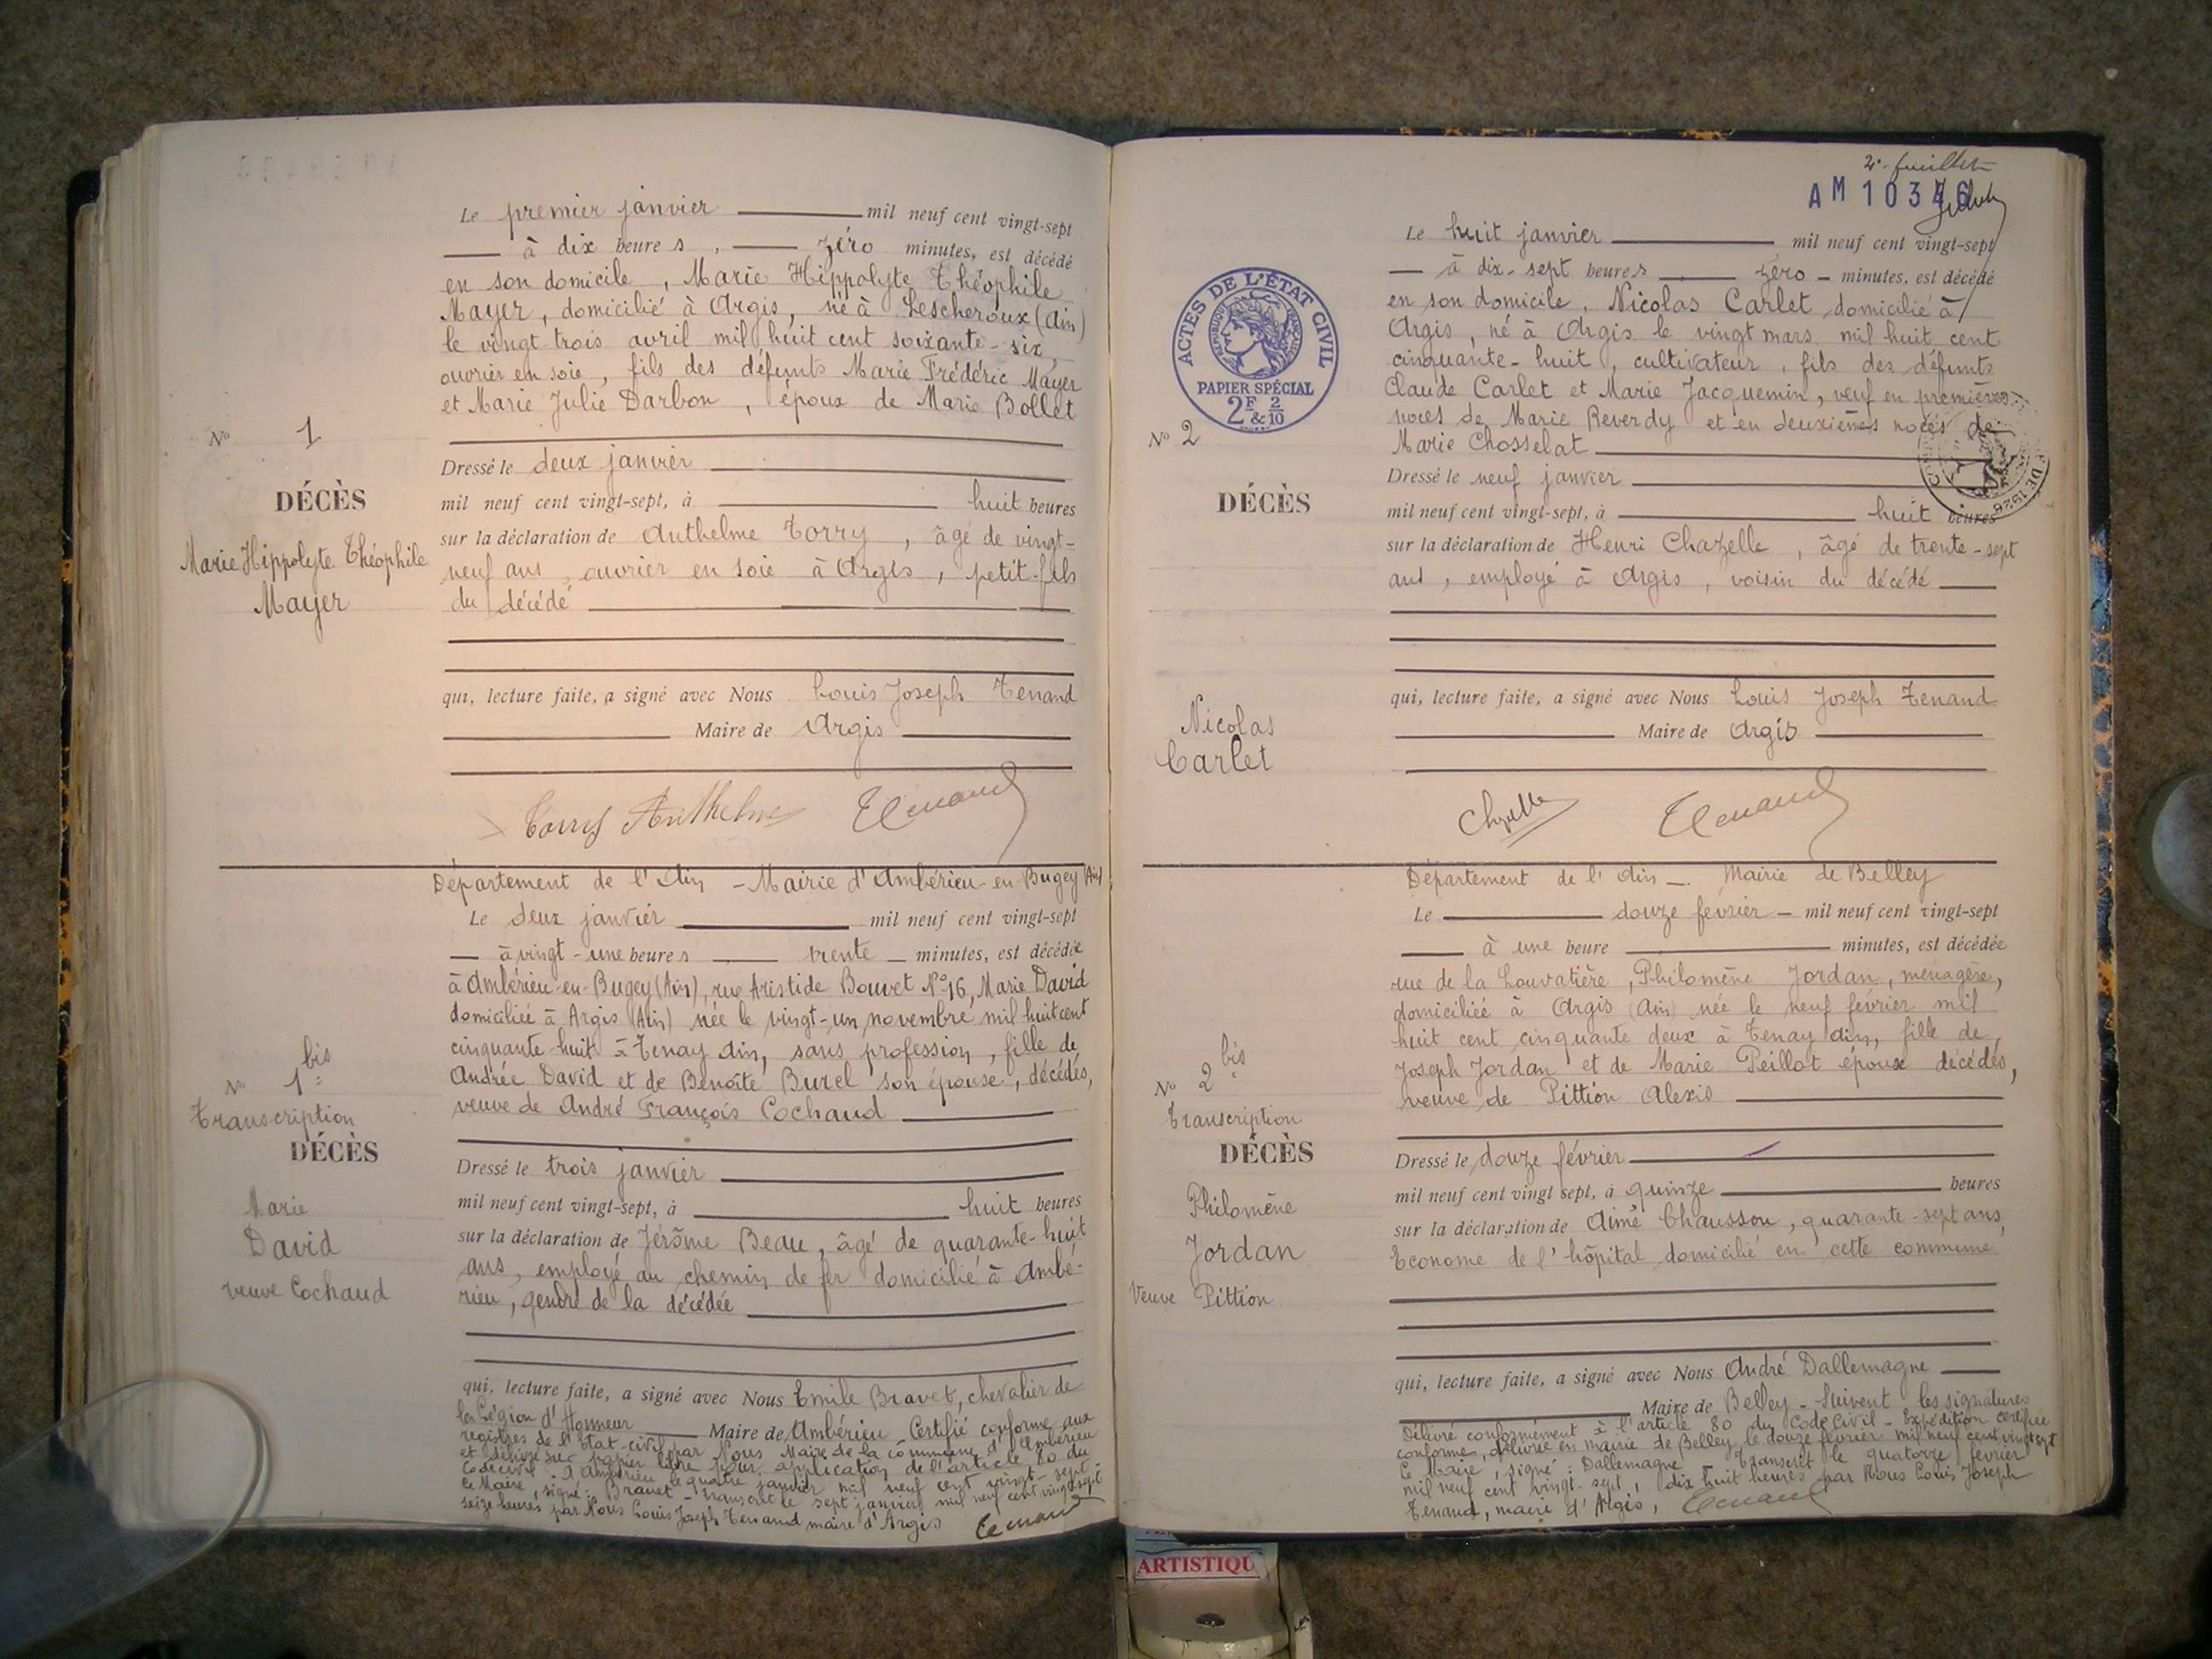 Le premier janvier mil neuf cent vingt-sept
à dix heures, zéro minutes, est décédé
en son domicile, Marie Hippolyte Théophile
Mayer, domicilié à Argis, né à Lescheroux (Ain)
le vingt trois avril mil huit cent soixante-six,
ouvrier en soie, fils des défunts Marie Frédéric Mayer
et Marie Julie Darbon, époux de Marie Bollet
N° 1
DÉCÈS
Marie Hippolyte Théophile
Mayer
Dressé le deux janvier
mil neuf cent vingt-sept, à huit heures
sur la déclaration de Anthelme Torry, âgé de vingt-
neuf ans, ouvrier en soie à Argis, petit-fils
du décédé
qui, lecture faite, a signé avec Nous Louis Joseph Tenand
Maire de Argis
Torry Anthelme Tenand
Département de l'Ain - Mairie d'Ambérieu-en-Bugey (Ain)
Le deux janvier mil neuf cent vingt-sept
à vingt-une heures trente minutes, est décédée
à Ambérieu-en-Bugey (Ain), rue Aristide Bouvet N° 16, Marie David
domiciliée à Argis (Ain) née le vingt-un novembre mil huit cent
cinquante-huit à Tenay Ain, sans profession, fille de
Andrée David et de Benoîte Burel son épouse, décédés,
veuve de André François Cochaud
N° 1 bis
Transcription
DÉCÈS
Marie
David
veuve Cochaud
Dressé le trois janvier
mil neuf cent vingt-sept, à huit heures
sur la déclaration de Jérôme Beau, âgé de quarante-huit
ans, employé au chemin de fer domicilié à Ambé-
rieu, gendre de la décédée
qui, lecture faite, a signé avec Nous Emile Bravet, chevalier de
la Légion d'Honneur Maire de Ambérieu Certifié conforme aux
registres de l'Etat-civil par Nous Maire de la commune d'Ambérieu
et délivré sur papier libre pour application de l'article 80 du
Code civil. A Ambérieu le quatre janvier mil neuf cent vingt-sept
Le Maire, signé: Bravet - Transcrit le sept janvier mil neuf cent vingt sept
seize heures par Nous Louis Joseph Tenand maire d'Argis Tenand
2e feuillet
AM 10346
Le huit janvier mil neuf cent vingt-sept
à dix-sept heures zéro minutes, est décédé
en son domicile, Nicolas Carlet domicilié à
Argis, né à Argis le vingt mars mil huit cent
cinquante-huit, cultivateur, fils des défunts
Claude Carlet et Marie Jacquemin, veuf en premières
noces de Marie Reverdy et en deuxièmes noces de
Marie Chosselat
ACTES DE L'ÉTAT CIVIL
RÉPUBLIQUE FRANÇAISE
PAPIER SPÉCIAL
2F & 2/10
N° 2
DÉCÈS
Nicolas
Carlet
DE 1926
Dressé le neuf janvier
mil neuf cent vingt-sept, à huit heures
sur la déclaration de Henri Chazelle, âgé de trente-sept
ans, employé à Argis, voisin du décédé
qui, lecture faite, a signé avec Nous Louis Joseph Tenand
Maire de Argis
Chazelle Tenand
Département de l'Ain - Mairie de Belley
Le douze février mil neuf cent vingt-sept
à une heure minutes, est décédée
rue de la Louvatière, Philomène Jordan, ménagère,
domiciliée à Argis (Ain) née le neuf février mil
huit cent cinquante deux à Tenay Ain, fille de
Joseph Jordan et de Marie Peillot époux décédés,
veuve de Pittion Alexis
N° 2 bis
Transcription
DÉCÈS
Philomène
Jordan
Veuve Pittion
Dressé le douze février
mil neuf cent vingt sept, à quinze heures
sur la déclaration de Aimé Chausson, quarante-sept ans,
Econome de l'hôpital domicilié en cette commune
qui, lecture faite, a signé avec Nous André Dallemagne
Maire de Belley - Suivent les signatures
Délivré conformément à l'article 80 du Code Civil - Expédition certifiée
conforme, délivrée en mairie de Belley le douze février mil neuf cent vingt sept
Le Maire, signé: Dallemagne - Transcrit le quatorze février
mil neuf cent vingt-sept, dix huit heures par Nous Louis Joseph
Tenand, maire d'Argis, Tenand
ARTISTIQU